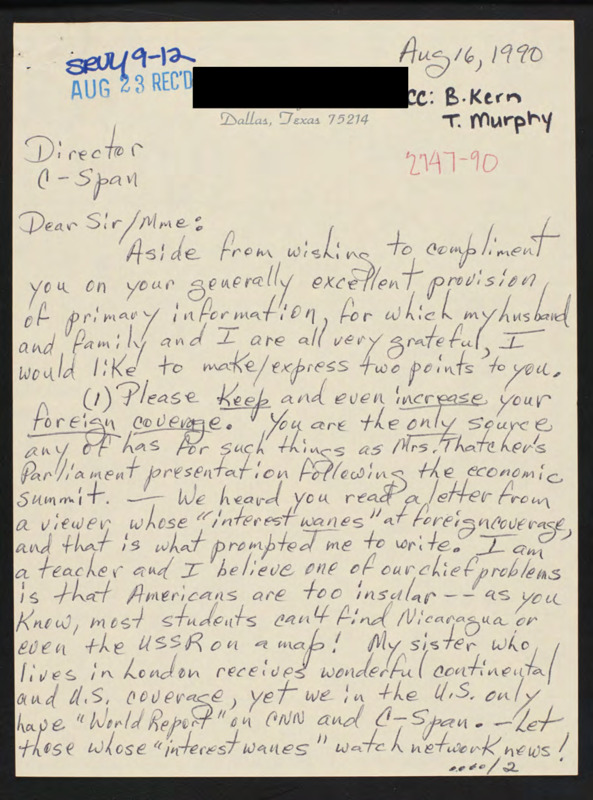 SRVY 9-12
AUG 23 REC'D
Aug 16, 1990
CC: B. Kern
T. Murphy
Dallas, Texas 75214
2747-90
Director
C-Span
Dear Sir/Mme:
Aside from wishing to compliment
you on your generally excellent provision
of primary information, for which my husband
and family and I are all very grateful, I
would like to make/express two points to you.
(1) Please Keep and even increase your
foreign coverage. You are the only source
any of has for such things as Mrs. Thatcher's
Parliament presentation following the economic
summit. — We heard you read a letter from
a viewer whose "interest wanes" at foreign coverage,
and that is what prompted me to write. I am
a teacher and I believe one of our chief problems
is that Americans are too insular -- as you
know, most students can't find Nicaragua or
even the USSR on a map! My sister who
lives in London receives wonderful continental
and U.S. coverage, yet we in the U.S. only
have "World Report" on CNN and C-Span. - Let
those whose "interest wanes" watch network news!
..../2